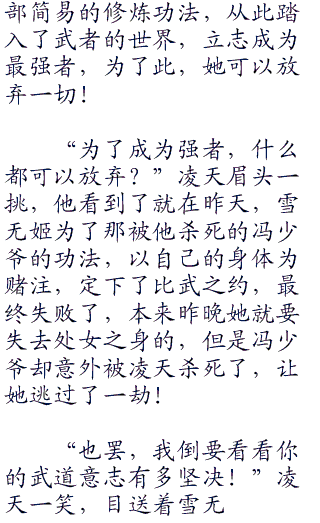 部简易的修炼功法，从此踏
入了武者的世界，立志成为
最强者，为了此，她可以放
弃一切！
“为了成为强者，什么
都可以放弃？”凌天眉头一
挑，他看到了就在昨天，雪
无姬为了那被他杀死的冯少
爷的功法，以自己的身体为
赌注，定下了比武之约，最
终失败了，本来昨晚她就要
失去处女之身的，但是冯少
爷却意外被凌天杀死了，让
她逃过了一劫！
“也罢，我倒要看看你
的武道意志有多坚决！”凌
天一笑，目送着雪无